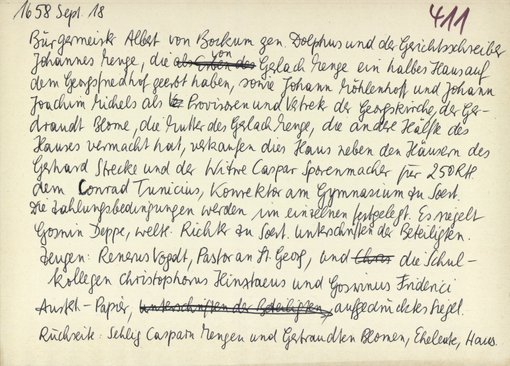 1658 Sept. 18
411
Bürgermeister Albert von Bockum gen. Dolphus und der Gerichtsschreiber
Johannes Menge, die als Erben des von Gerlach Menge ein halbes Haus auf
dem Georgsfriedhof geerbt haben, sowie Johann Möhlenhoff und Johann
Joachim Michels als Provisoren und Vertreter der Georgskirche, der Ger-
draudt Blome, die Mutter des Gerlach Menge, die andere Hälfte des
Hauses vermacht hat, verkaufen dies Haus neben den Häusern des
Gerhard Strecke und der Witwe Caspar Sporenmacher für 250 Rtl.
dem Conrad Tunicius, Konrektor am Gymnasium zu Soest.
Die Zahlungsbedingungen werden im einzelnen festgelegt. Es siegelt
Goswin Deppe, weltl. Richter zu Soest. Unterschriften der Beteiligten.
Zeugen: Renerus Vogdt, Pastor an St. Georg, und Chris die Schul-
kollegen Christophorus Hinstaeus und Goswinus Friderici
Ausf. - Papier, Unterschriften der Beteiligten, aufgedrücktes Siegel.
Rückseite: Sehlig Casparn Mengen und Gertraudten Blomen, Eheleute, Haus.